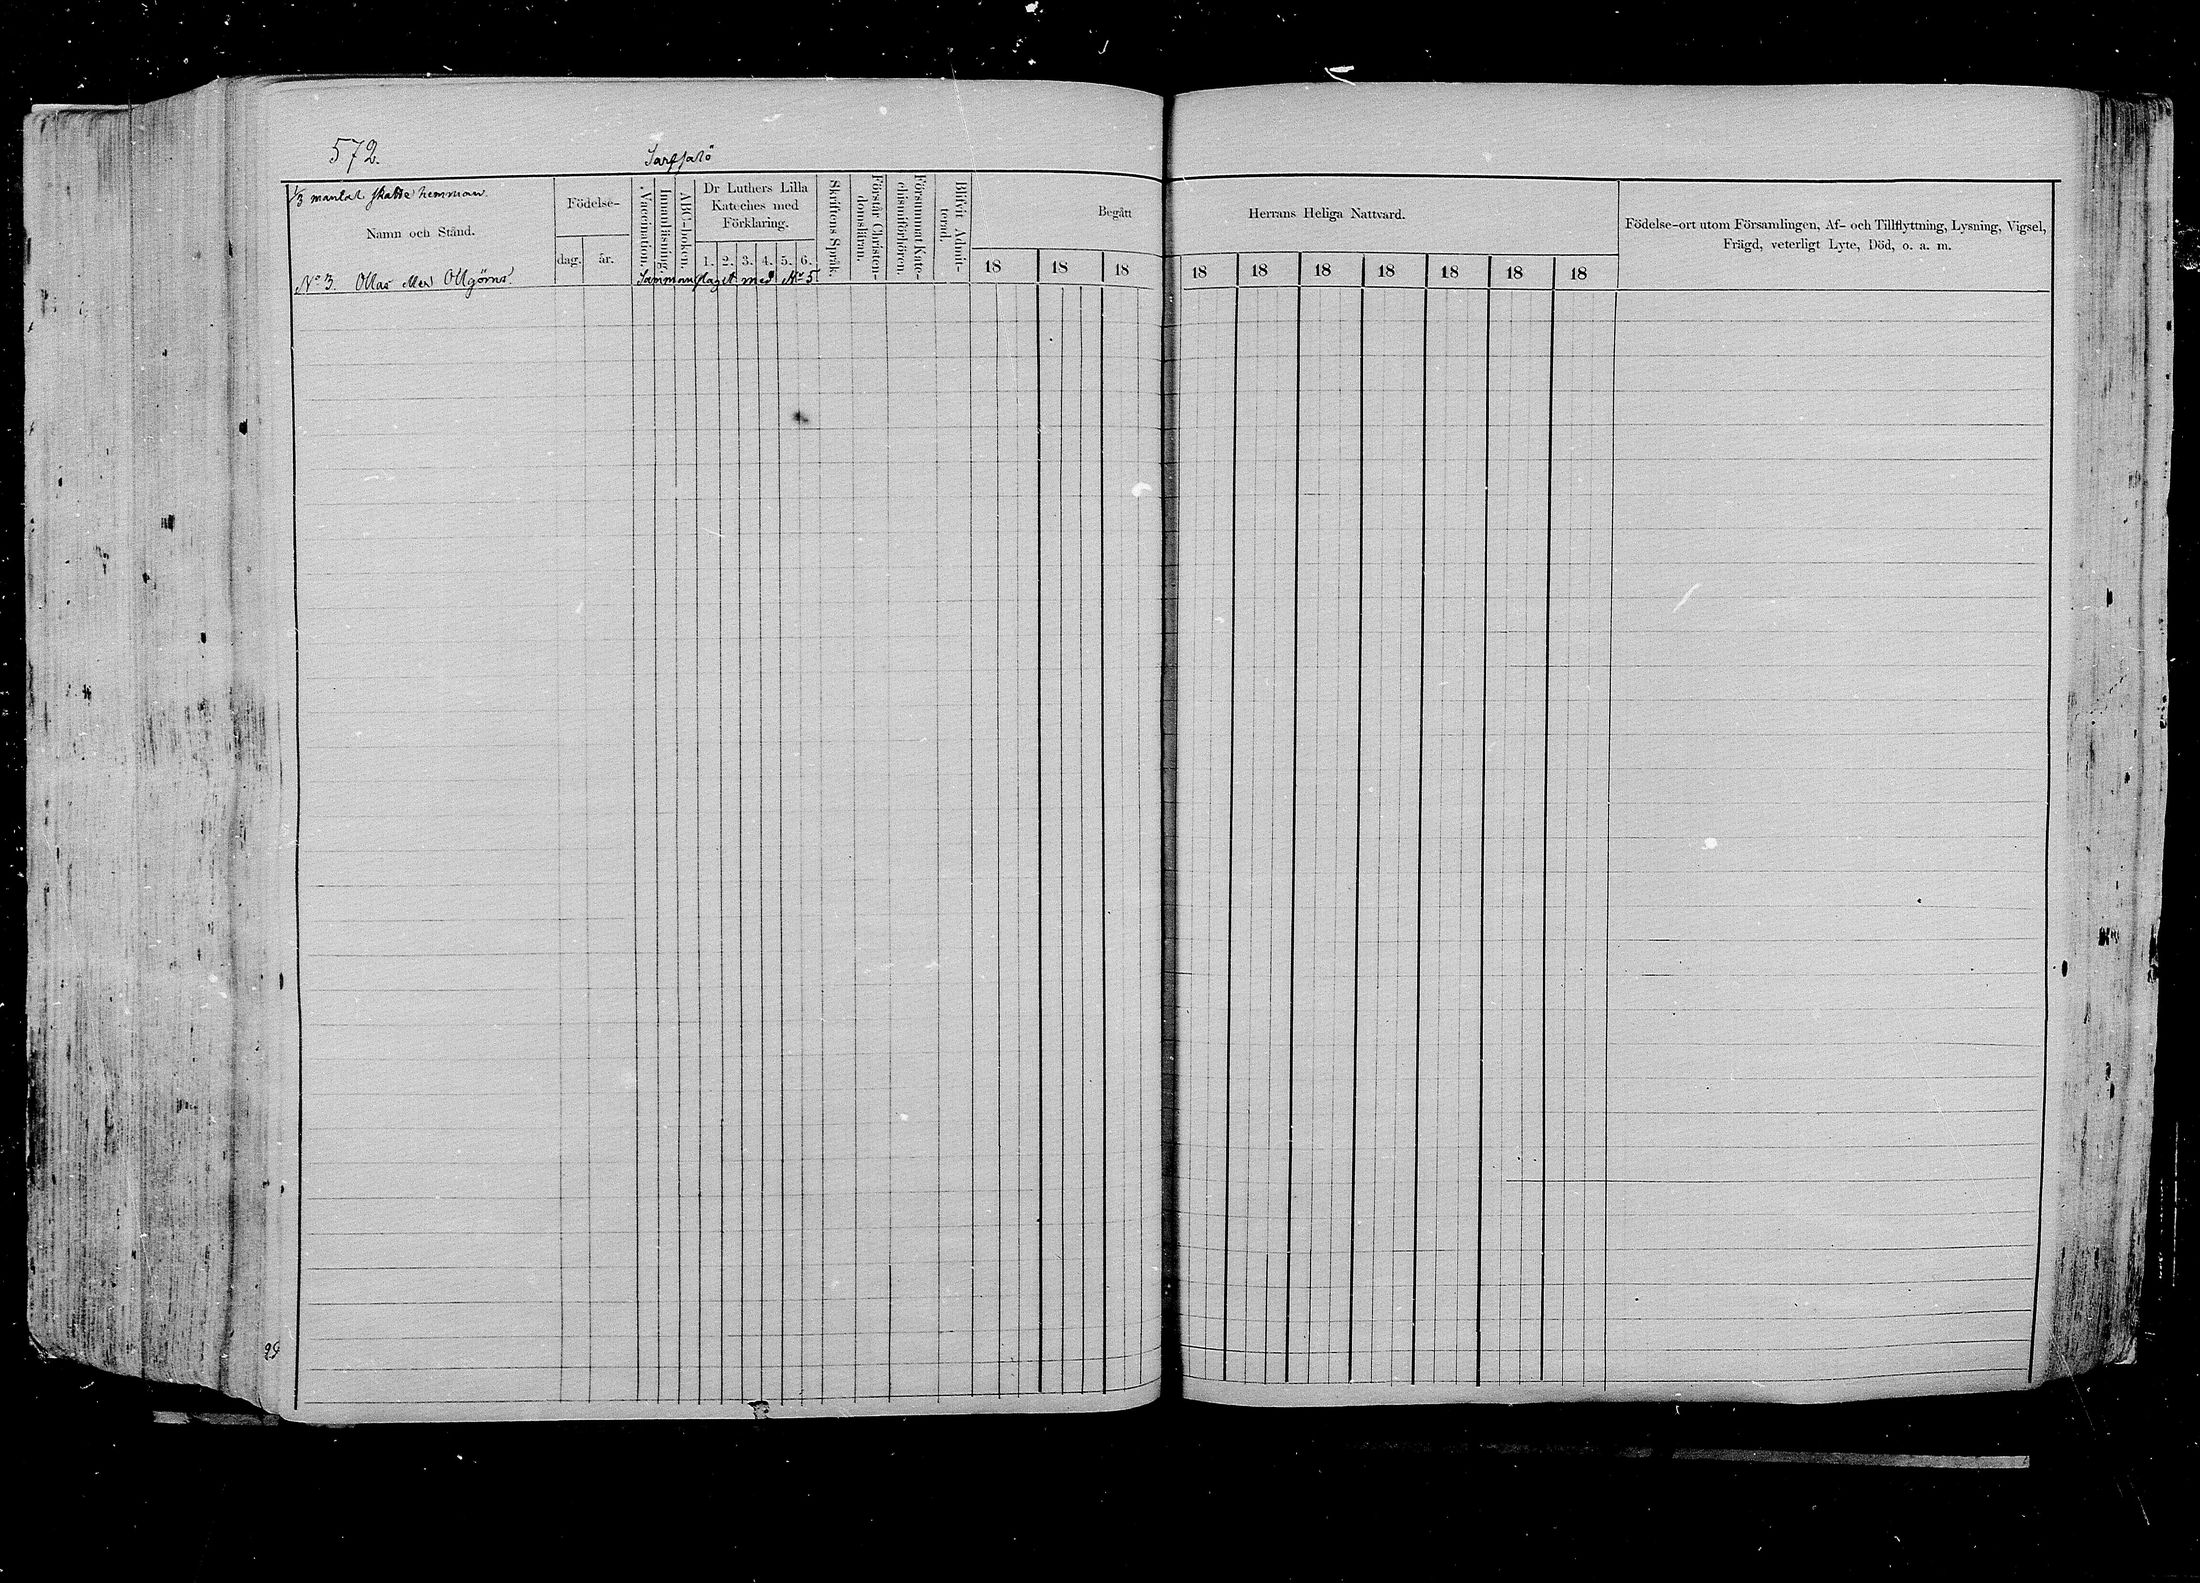 572.
Sarfsalö
1/3 mantal skatte hemman.
Namn och Stånd.
Födelse-
dag. år.
Vaccination.
Innanläsning.
ABC-boken.
Dr Luthers Lilla
Kateches med
Förklaring.
1. 2. 3. 4. 5. 6.
Skriftens Språk.
Förstår Christen-
domsläran.
Försummat Kate-
chismiförhören.
Blifvit Admit-
terad.
Begått Herrans Heliga Nattvard.
18 18 18 18 18 18 18 18 18 18
Födelse-ort utom Församlingen, Af- och Tillflyttning, Lysning, Vigsel,
Frägd, veterligt Lyte, Död, o. a. m.
No 3. Ollas eller Sammanslaget med No 5
29